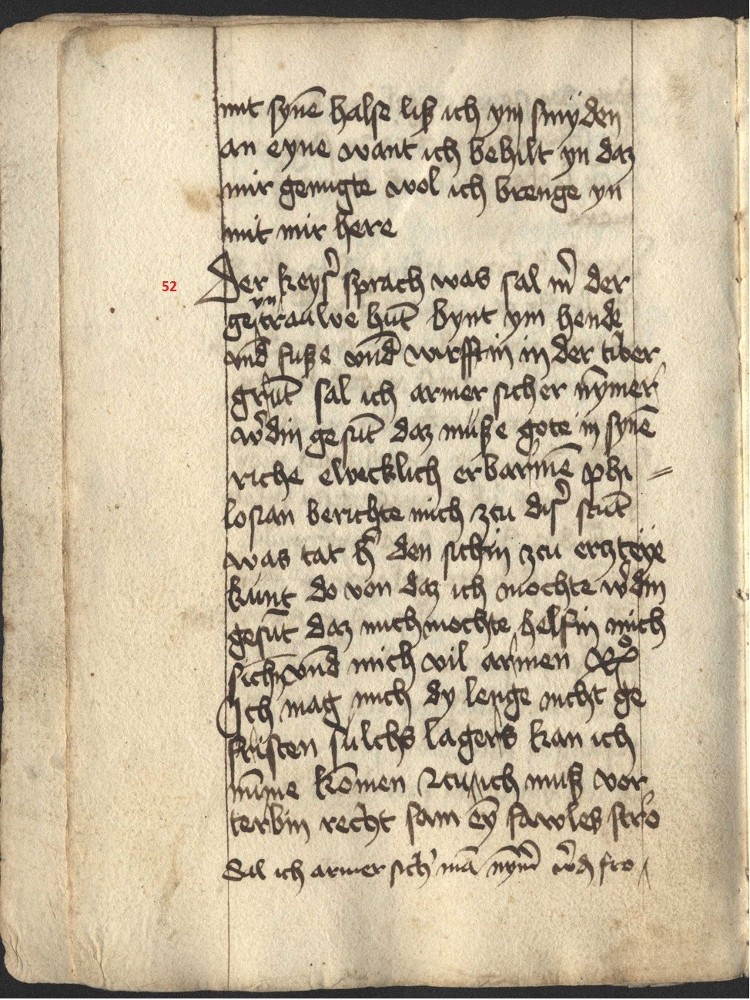 mit synē halse liß ich ym smyden
an eyne want ich behilt yn daz
mir genugte wol ich brenge yn
mit mir here
52
Der keyſ sprach was sal m̄ der
geyntrauwe hūt bynt ym hende
vnd fuße vnd wirfftin in der tiber
grūt sal ich armer sicher nȳmer
w̄din gesūt daz muße gote in synē
riche elwecklich erbarmē phi
losian berichte mich zcu diſ stūt
was tat h̄ den sichin zcu erczteye
kunt do von daz ich mochte w̄din
gesūt daz mich mochte helfin mich
sichn̄ vnd mich vil armen
Ich mag mich dy lenge nicht ge
fristen sulchs lagers kan ich
nūme komen zcu ich muß vor
terbin recht sam eȳ fawles stro
Sal ich armer sich mā nym̄ w̄dn fro